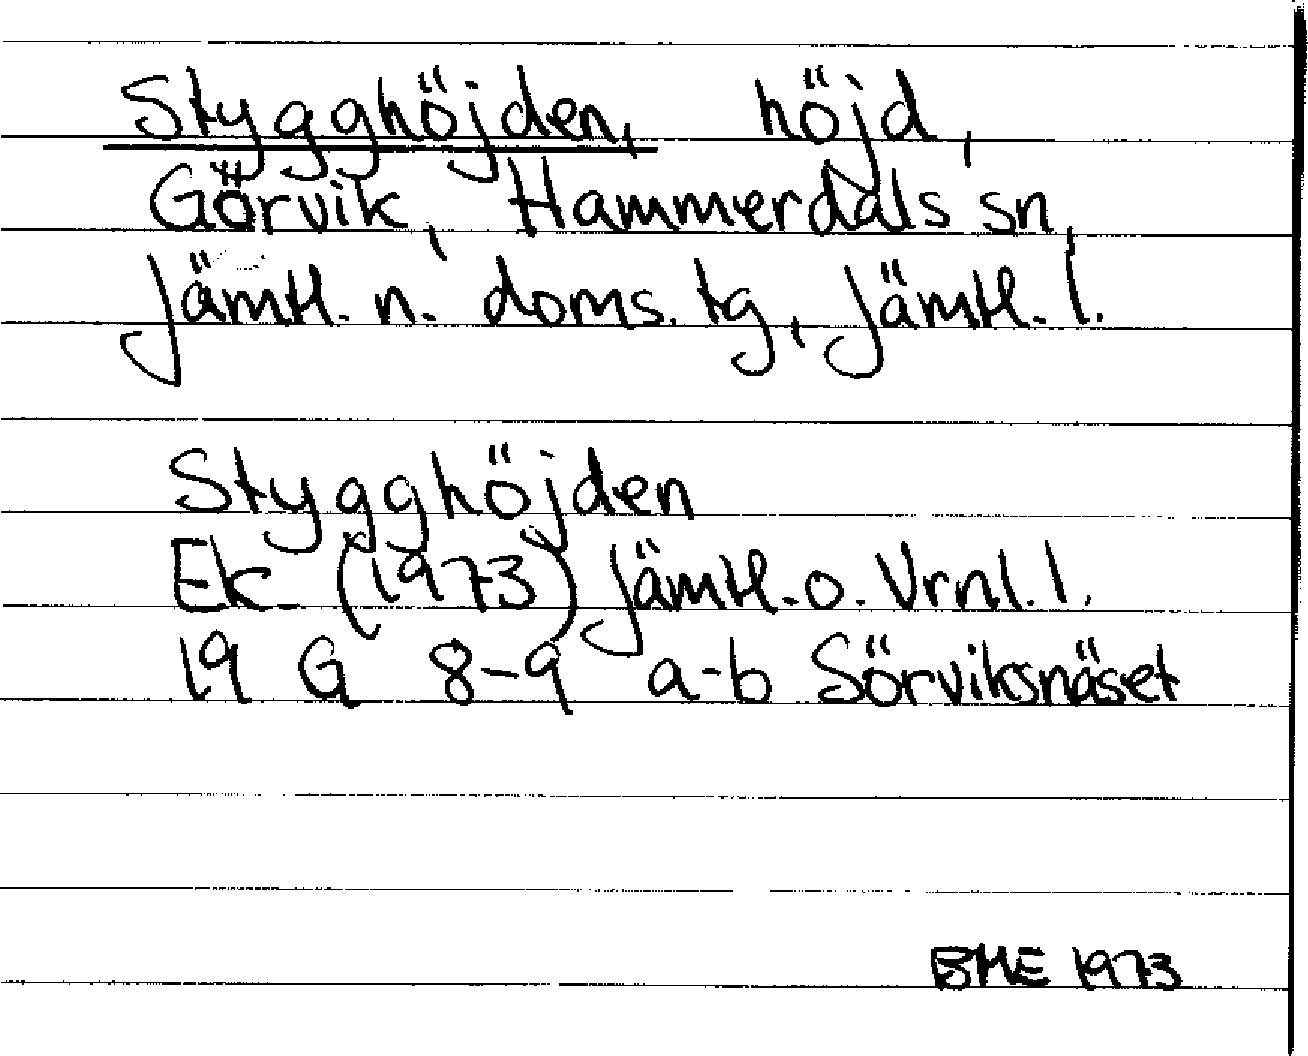 Stygghöjden, höjd,
Görvik, Hammerdals sn,
Jämtl. n. doms. tg, Jämtl. l.
Stygghöjden
Ek. (1973) Jämtl. o. Vrnl. l.
19 G 8-9 a-b Sörviksnäset
BME 1973